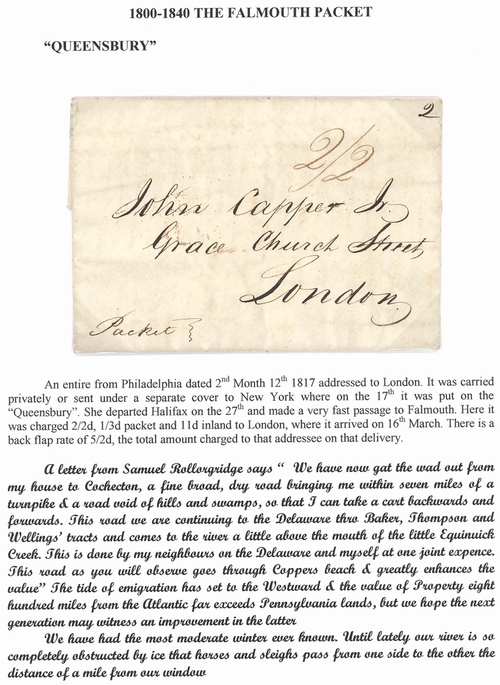 1800-1840 THE FALMOUTH PACKET
“QUEENSBURY”
2
2/2
John Capper Jr.
Grace Church Street
London
Packet
An entire from Philadelphia dated 2nd Month 12th 1817 addressed to London. It was carried
privately or sent under a separate cover to New York where on the 17th it was put on the
“Queensbury”. She departed Halifax on the 27th and made a very fast passage to Falmouth. Here it
was charged 2/2d, 1/3d packet and 11d inland to London, where it arrived on 16th March. There is a
back flap rate of 5/2d, the total amount charged to that addressee on that delivery.
A letter from Samuel Rollorgridge says “ We have now gat the wad out from
my house to Cochecton, a fine broad, dry road bringing me within seven miles of a
turnpike & a road void of hills and swamps, so that I can take a cart backwards and
forwards. This road we are continuing to the Delaware thro Baker, Thompson and
Wellings’ tracts and comes to the river a little above the mouth of the little Equinuick
Creek. This is done by my neighbours on the Delaware and myself at one joint expence.
This road as you will observe goes through Coppers beach & greatly enhances the
value” The tide of emigration has set to the Westward & the value of Property eight
hundred miles from the Atlantic far exceeds Pennsylvania lands, but we hope the next
generation may witness an improvement in the latter
We have had the most moderate winter ever known. Until lately our river is so
completely obstructed by ice that horses and sleighs pass from one side to the other the
distance of a mile from our window